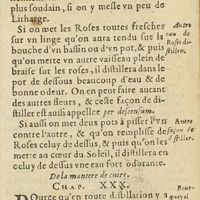 plus soudain, si on y mesle vn peu de
Litharge.
Si on met les Roses toutes fresches
sur vn linge qu'on aura tendu sur la
bouche d'vn bassin ou d'vn pot, & puis
qu'on mette vn autre vaisseau plein de
braise sur les roses, il distillera dans le
pot de dessous beaucoup d'eau & de
bonne odeur. On en peut faire autant
des autres fleurs, & ceste façon de di-
stiller est aussi appellee per descensum.
Si aussi on met deux pots à pisser l'vn
contre l'autre, & qu'on remplisse de
Roses celuy de dessus, & puis qu'on les
mette au cœur du Soleil, il distillera en
celuy de dessus vne eau fort odorante.
De la maniere de cuire.
CHAP. XXX.
POurce qu'en toute distillation y a
Autre
eau de
Roses di-
stillee.
Autre
façon de
distiller.
Pour-
quoy